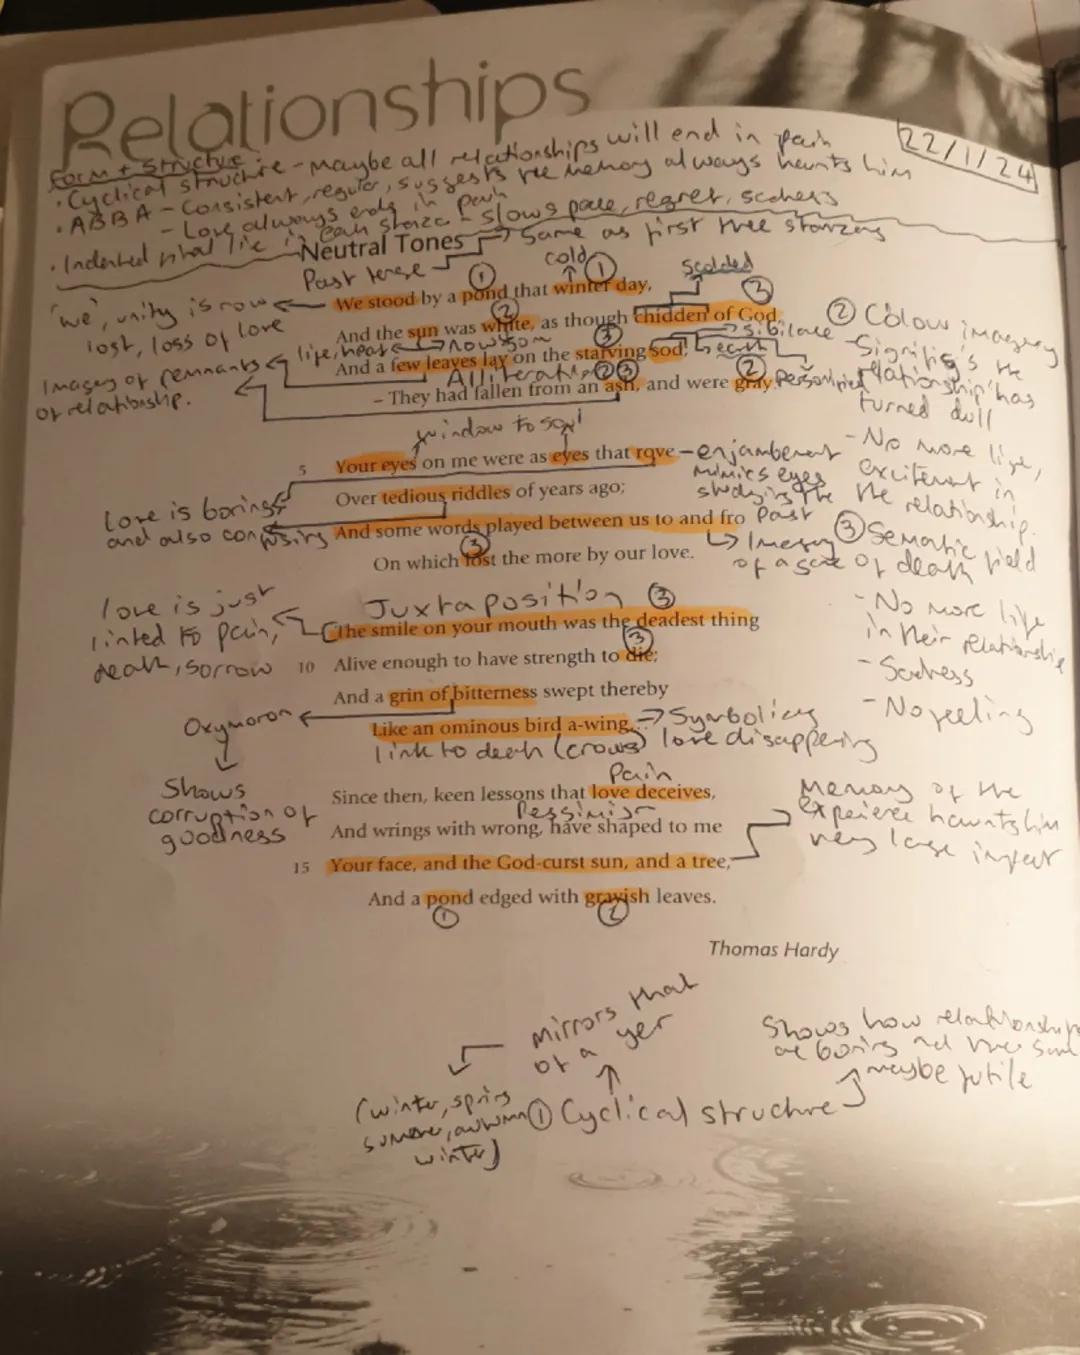 Relationships
22/1/24
Form + Structure
· Cyclical structure - maybe all relationships will end in pain
· ABBA - Consistent, regular, suggests the memory always haunts him
- Love always ends in pain
· Indented final line in each stanza - slows pace, regret, sadness
Neutral Tones → Same as first three stanzas
Past tense
cold
① ①
scolded
We stood by a pond that winter day,
'we', unity is now
lost, loss of love
② ②
And the sun was white, as though chidden of God,
life, heat
③
sibilance
And a few leaves lay on the starving sod;
earth
Alliteration ② ③ ②
Personified
– They had fallen from an ash, and were gray.
Images of remnants
of relationship.
② Colour imagery
- Signifis's the
relationship has
turned dull
- No more life,
excitement in
the relationship.
window to soul
5 Your eyes on me were as eyes that rove
- enjambement
mimics eyes
studying the
past
Over tedious riddles of years ago;
Love is boring
and also confusing
And some words played between us to and fro
③
On which lost the more by our love.
↳ Imagery
of a
③ Semantic field
of death
- No more life
in their relationship
- Sadness
- No feeling
Juxtaposition ③
love is just
linked to pain,
death, sorrow
The smile on your mouth was the deadest thing
③
10 Alive enough to have strength to die;
And a grin of bitterness swept thereby
Oxymoron
Shows
corruption of
goodness
Like an ominous bird a-wing....
→ Symbolises
love disappearing
link to death (crows)
Pain
Since then, keen lessons that love deceives,
Pessimism
And wrings with wrong, have shaped to me
15 Your face, and the God-curst sun, and a tree,
Memory of the
experience haunts him
very large impact
And a pond edged with grayish leaves.
① ②
Thomas Hardy
Mirrors that
of a yer
(winter, spring
summer, autumn
winter)
① Cyclical structure
Shows how relationships
are boring and the same
maybe futile